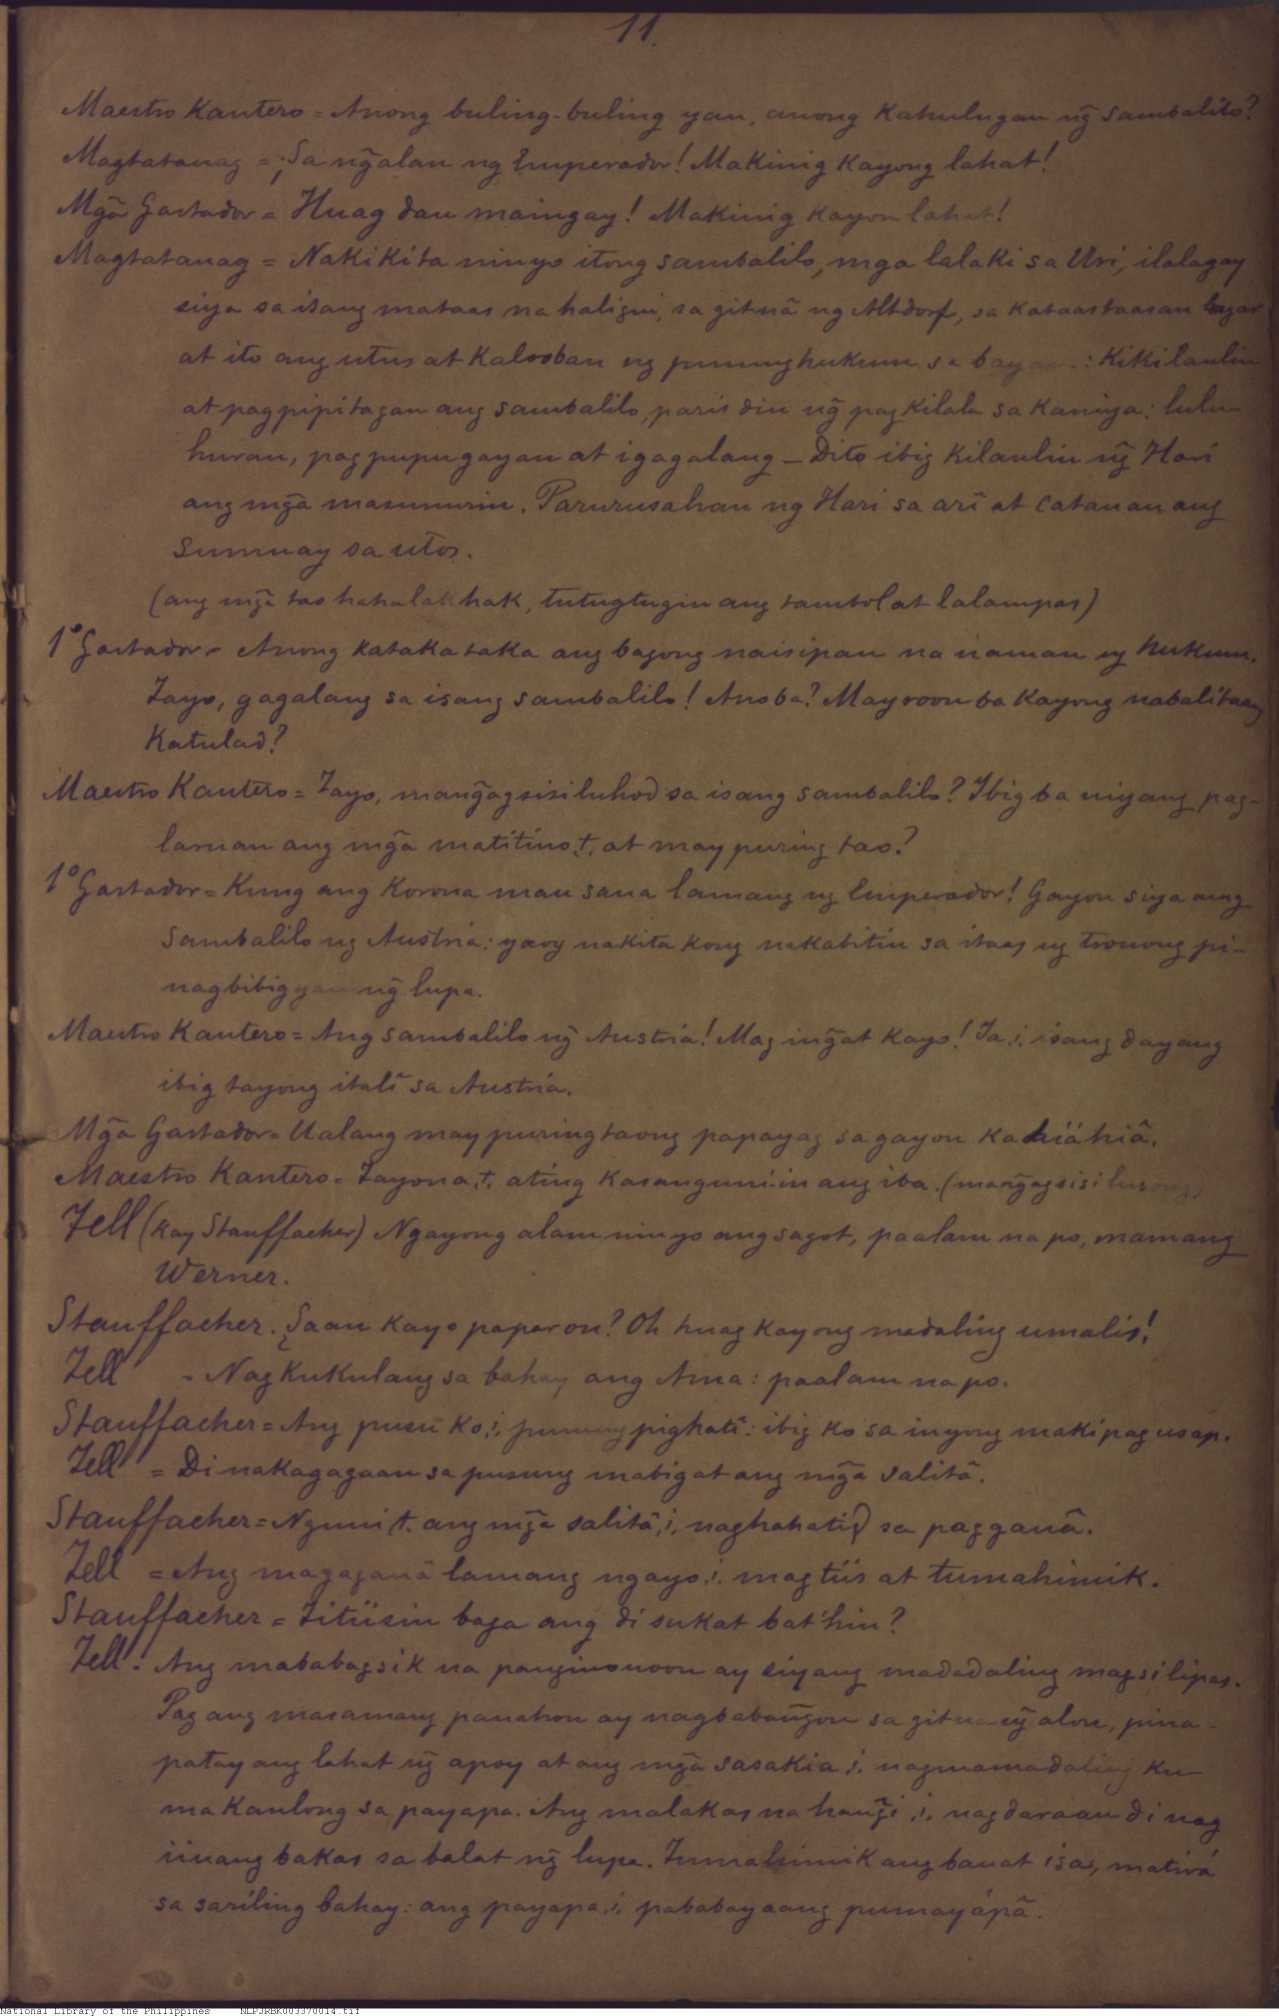 11.
Maestro Kantero = Anong buling-buling yan, anong kahulugan ng̃ sambalilo?
Magtatanag = ¡Sa ng̃alan ng Emperador! Makinig kayong lahat!
Mg̃a Gastador = Huag dau maingay! Makinig kayon lahat!
Magtatanag = Nakikita ninyo itong sambalilo, mga lalaki sa Uri, ilalagay
siya sa isang mataas na haligui, sa gitnã ng Altdorf, sa kataastaasan lugar
at ito ang utus at kalooban ng punung hukum sa bayan : Kikilanlin
at pagpipitagan ang sambalilo, paris din ng̃ pagkilala sa kaniya: lulu-
huran, pagpupugayan at igagalang _ Dito ibig kilanlin ng̃ Hari
ang mg̃a masunurin. Parurusahan ng Hari sa arĩ at catauan ang
sumuay sa utos.
(ang mg̃a tao hahalakhak, tutugtugin ang tambol at lalampas)
1º Gastador = Anong kataka taka ang bagong naisipan na naman ng hukum.
Tayo, gagalang sa isang sambalilo! Ano ba? Mayroon ba kayong nabalitaang
katulad?
Maestro Kantero = Tayo, mang̃agsisiluhod sa isang sambalilo? Ibig ba niyang pag-
laruan ang mg̃a matitino,t, at may puring tao?
1º Gastador = Kung ang korona man sana lamang ng Emperador! Gayon siya ang
sambalilo ng Austria: yaoy nakita kong nakabitin sa itaas ng tronong pi-
nagbibigyan ng̃ lupa.
Maestro Kantero = Ang sambalilo ng̃ Austria! Mag ing̃at kayo! Ia,i, isang dayang
ibig tayong italĩ sa Austria.
Mg̃a Gastador = Ualang may puring taong papayag sa gayon kahiáhiã.
Maestro Kantero = Tayo na,t, ating kasanguni-in ang iba. (mang̃agsisilurong)
Tell (kay Stauffacher) Ngayong alam ninyo ang sagot, paalam na po, mamang
Werner.
Stauffacher. Saan kayo paparon? Oh huag kayong madaling umalis!
Tell = Nagkukulang sa bahay ang Ama: paalam na po.
Stauffacher = Ang pusu ko,i, punung pighatĩ: ibig ko sa inyong makipag usap.
Tell = Di nakagagaan sa pusung mabigat ang mg̃a salitã.
Stauffacher = Nguni,t, ang mg̃a salitã,i, naghahatid sa paggauã.
Tell = Ang magagauã lamang ngayo,i, magtiis at tumahimik.
Stauffacher = Titiisin baga ang di sukat bat'hin?
Tell = Ang mababagsik na panginonoon ay siyang madadaling magsilipas.
Pag ang masamang panahon ay nagbabang̃on sa gitna ng̃ alon, pina-
patay ang lahat ng̃ apoy at ang mg̃a sasakia,i, nagmamadaling ku-
makanlong sa payapa. Ang malakas na hang̃i,i, nagdaraan di nag
iiuang bakas sa balat ng̃ lupa. Tumahimik ang bauat isa, matirá
sa sariling bahay: ang payapa,i, pababayaang pumayápã.
National Library of the Philippines NLPJRBK003370014.tif